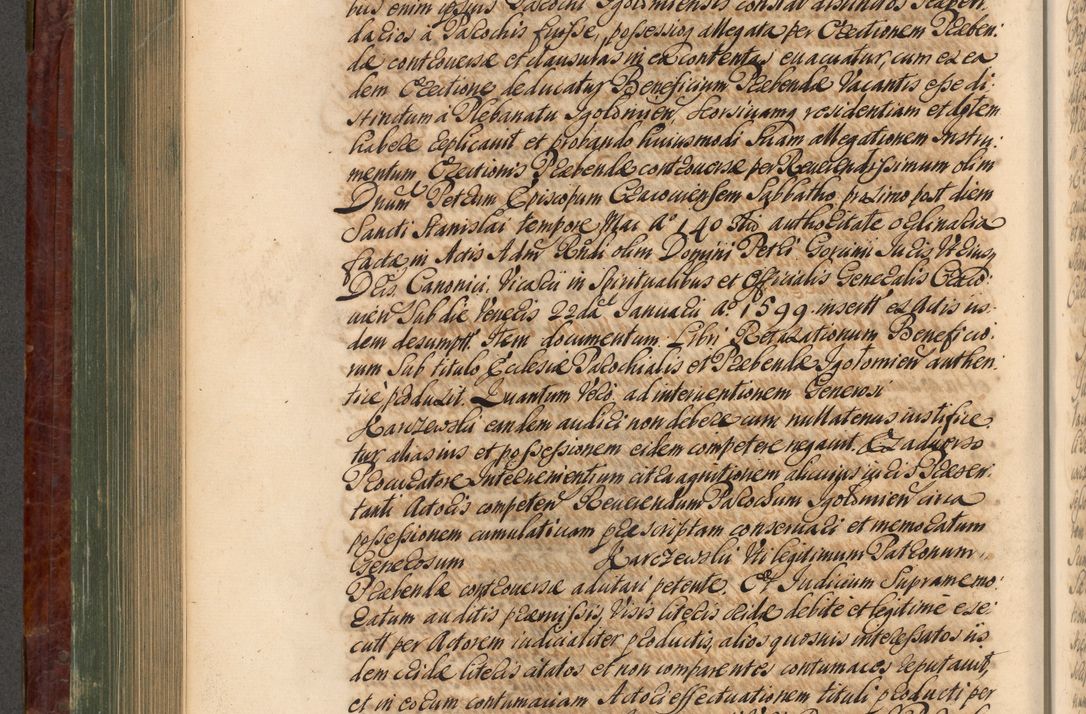 bus enim ipsius Parochi Igolomiensis constat distinctos Reperi¬
darios à Parochis fuisse, possessioq allegata per Erectionem Præben¬
dæ controversæ et clausulas in ea contentas evacuatur, cum ex ea
dem Erectione deducatur Beneficium Præbendæ Vacantis esse di¬
stinctum a Plebanatu Igolomien, seorsivamq residentiam et dotem
habere explicavit et probando huiusmodi suam allegationem Instru¬
mentum Erectionis Præbendæ controversæ per Reverendissimum olim
Dnum Petrum Episcopum Cracoviensem Sabbatho proximo post diem
Sancti Stanislai tempore Maii Ao 140 authoritate ordinaria
facta in Actis Adm Rndi olim Domini Petri Juris Vtriusq
Dris Canonici, Vicarii in Spiritualibus et Officialis Generalis Craco¬
vien Sub die Veneris 22da Januarii ao 1599 insertt ex actis iis
dem desumptt. Item documentum Libri Retaxationum Beneficio¬
rum Sub titulo Ecclesiæ Parochialis et Præbendæ Igolomien authen
tice produxit. Quantum Vero ad interventionem Generosi
Karczewski eandem audiri non debere cum nullatenus iustifice
tur alias ius et possessionem eidem competere negavit. Ex adverso
Procuratore Intervenientium citra agnitionem alicuius juris Præsen¬
tanti Actoris competen Reverendum Parochum Igolomien circa
possessionem cumulativam præscriptam conservari et memoratum
Generosum Karczewski Vti legitimum Patronum
Præbendæ controversæ adiutari petente. Et Judicium Supra memo¬
ratum auditis præmissis, Visis literis cridæ debite et legitime exe¬
cutt per Actorem iudicialiter productis, alios quosvis interessatos iis
dem cridæ literis citatos et non comparentes contumaces reputavit,
et in eorum contumaciam Actori effectuationem tituli producti per